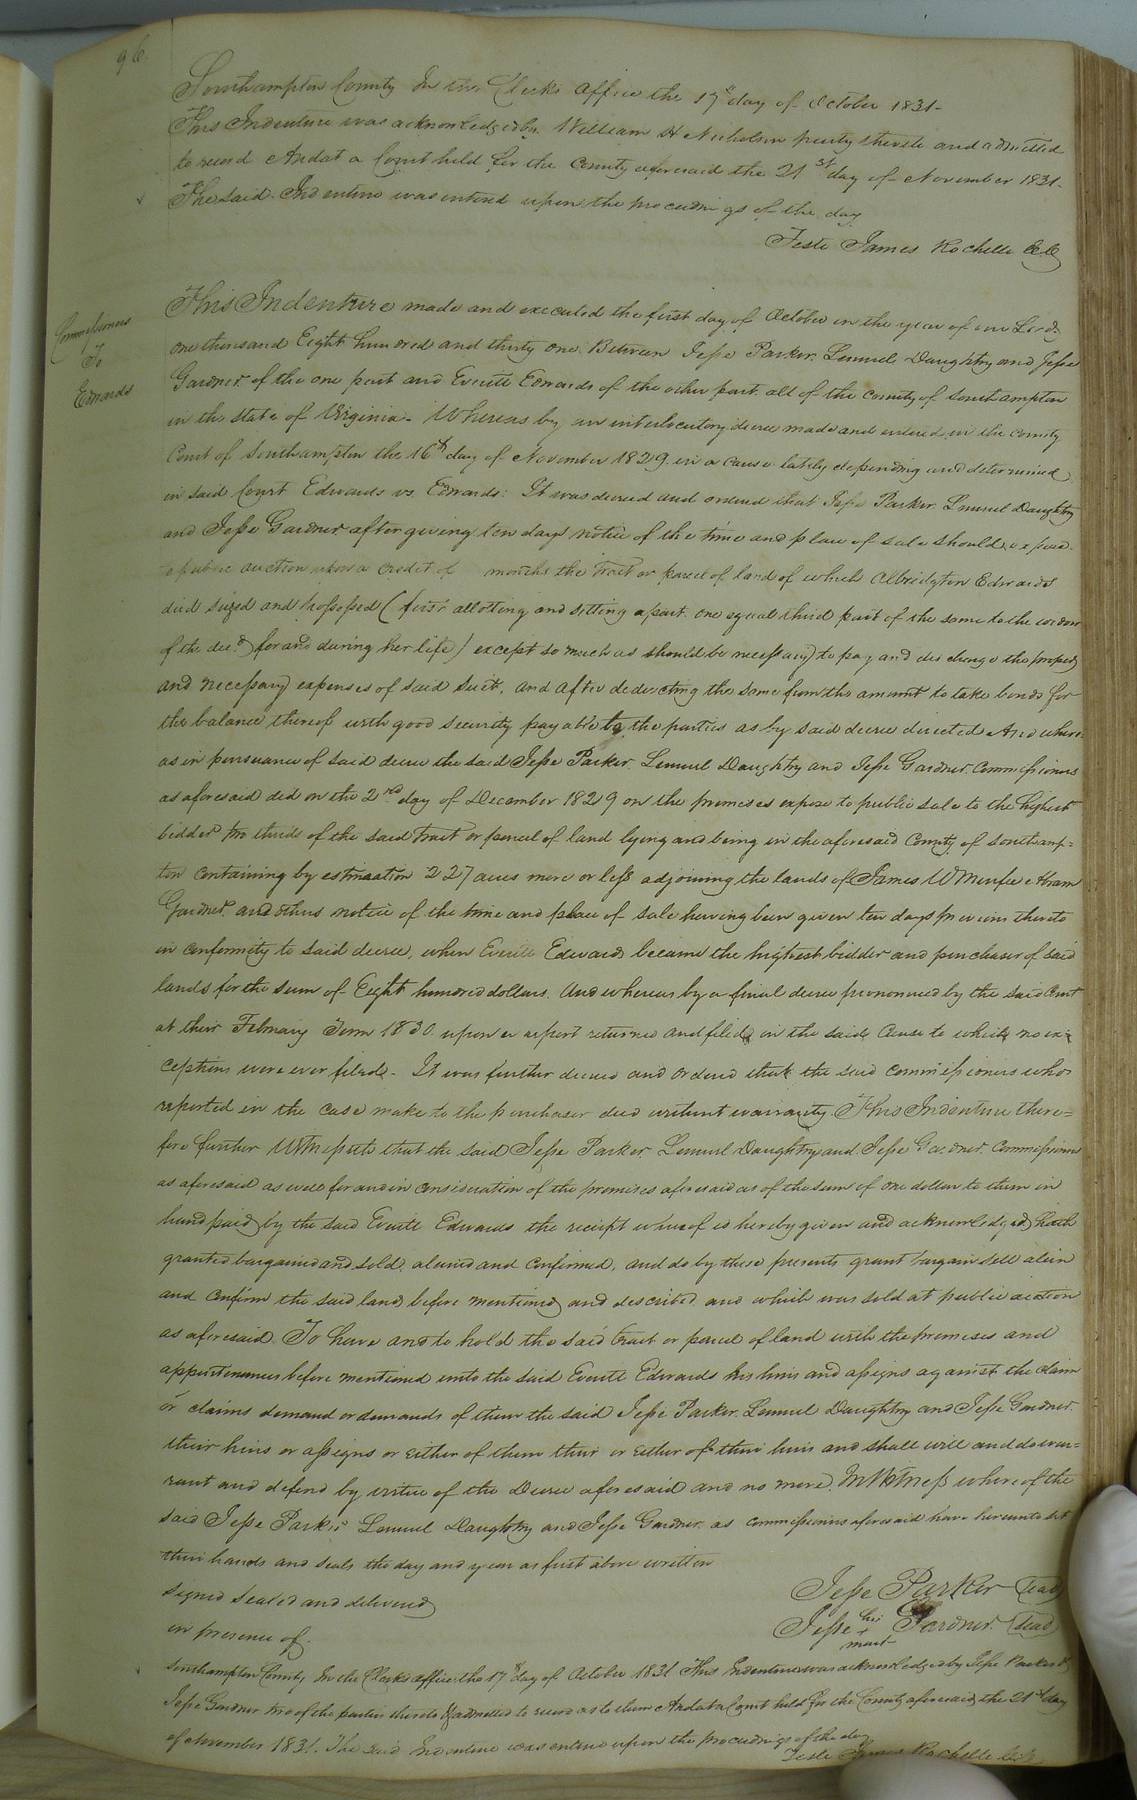 96
Southampton County In the Clerks office the 17th day of October 1831-
This Indenture was acknowledged by William H Nicholson party thereto and admitted
to record And at a Court held for the County aforesaid the 21st day of November 1831-
The said Indenture was entered upon the proceedings of the day
Teste James Rochelle CC
Commissioners
To
Edwards
This Indenture made and executed the first day of October in the year of our Lord
one thousand Eight hundred and thirty one Between Jesse Parker Lemuel Daughtry and Jesse
Gardner of the one part and Everitt Edwards of the other part all of the county of Southampton
in the state of Virginia- Whereas by an interlocutory decree made and entered in the County
Court of Southampton the 16th day of November 1829 in a cause lately depending and determined
in said Court Edwards vs. Edwards: It was decreed and ordered that Jesse Parker Lemuel Daughtry
and Jesse Gardner after giving ten days notice of the time and place of sale should expose
to public auction upon a credit of months the Tract or parcel of land of which Albridgton Edwards
died seized and possessed (first allotting and setting apart one equal third part of the same to the widow
of the decd for and during her life) except so much as should be necessary to pay and discharge the properly
and necessary expenses of said suit, and after deducting the same from the amount to take bonds for
the balance thereof with good security payable to the parties as by said decree directed And where-
as in pursuance of said decree the said Jesse Parker Lemuel Daughtry and Jesse Gardner Commissioners
as aforesaid did on the 2nd day of December 1829 on the premises expose to public sale to the highest
bidder two thirds of the said Tract or parcel of land lying and being in the aforesaid County of Southamp=
ton containing by estimation 227 acres more or less adjoining the lands of James W Menfee Abram
Gardner and others notice of the time and place of sale having been given ten days previous thereto
in conformity to said decree, when Everitt Edwards became the highest bidder and purchaser of said
lands for the sum of Eight hundred dollars. And whereas by a final decree pronounced by the said Court
at their February Term 1830 upon a report returned and filed in the said cause to which no ex-
ceptions were ever filed- It was further decreed and ordered that the said commissioners who
reported in the case make to the purchaser deed without warranty. This Indenture there=
fore further Witnesseth that the said Jesse Parker Lemuel Daughtry and Jesse Gardner Commissioners
as aforesaid as well for and in consideration of the premises aforesaid as of the sum of one dollar to them in
hand paid by the said Everitt Edwards the receipt whereof is hereby given and acknowledged hath
granted bargained and sold, aliened and confirmed, and do by these presents grant bargain sell alien
and confirm the said land before mentioned and described and which was sold at public auction
as aforesaid. To have and to hold the said tract or parcel of land with the premises and
appurtenances before mentioned unto the said Everitt Edwards his heirs and assigns against the claim
or claims demand or demands of them the said Jesse Parker Lemuel Daughtry and Jesse Gardner
their heirs or assigns or either of them their or either of their heirs and shall will and do war=
rant and defend by virtue of the Decree aforesaid and no more. In Witness whereof the
said Jesse Parker Lemuel Daughtry and Jesse Gardner as commissioners aforesaid have hereunto set
their hands and seals the day and year as first above written
Signed Sealed and delivered
in presence of
Jesse Parker Seal
Jesse his + mark Gardner Seal
Southampton County In the Clerks office the 17th day of October 1831 This Indenture was acknowledged by Jesse Parker &
Jesse Gardner two of the parties thereto & admitted to record as to them And at a Court held for the County aforesaid the 21st day
of November 1831. The said Indenture was entered upon the proceedings of the day
Teste James Rochelle